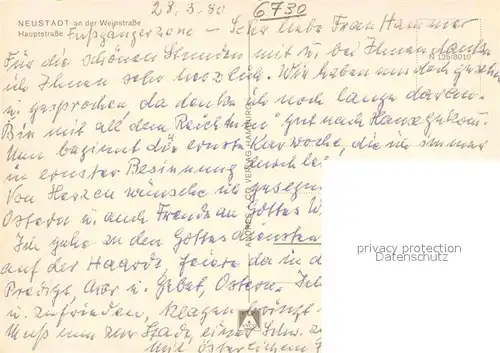 28.3.80 6730
NEUSTADT an der Weinstraße
Hauptstraße Fußgängerzone – Sehr liebe Frau Hammer
Für die schönen Stunden mit u. bei Ihnen danke
ich Ihnen sehr herzlich. Wir haben uns doch gesehen
N 125/8010
u. gesprochen, da denke ich noch lange daran.
Bin mit all dem "Reichtum" gut nach Hause gekom.
Nun beginnt die ernste Karwoche, die ich immer
in ernster Besinnung durchle
Von Herzen wünsche ich gesegn
Ostern u. auch Freude an Gottes W
Ich gehe zu den Gottesdiensten
auf der Haardt, feiere da in d
Predigt, u. Gebet, Ostern. Ich
u. zufrieden, Klagen
Muß nun zur Stadt, einer
Mit österlichem G
privacy protection
Datenschutz